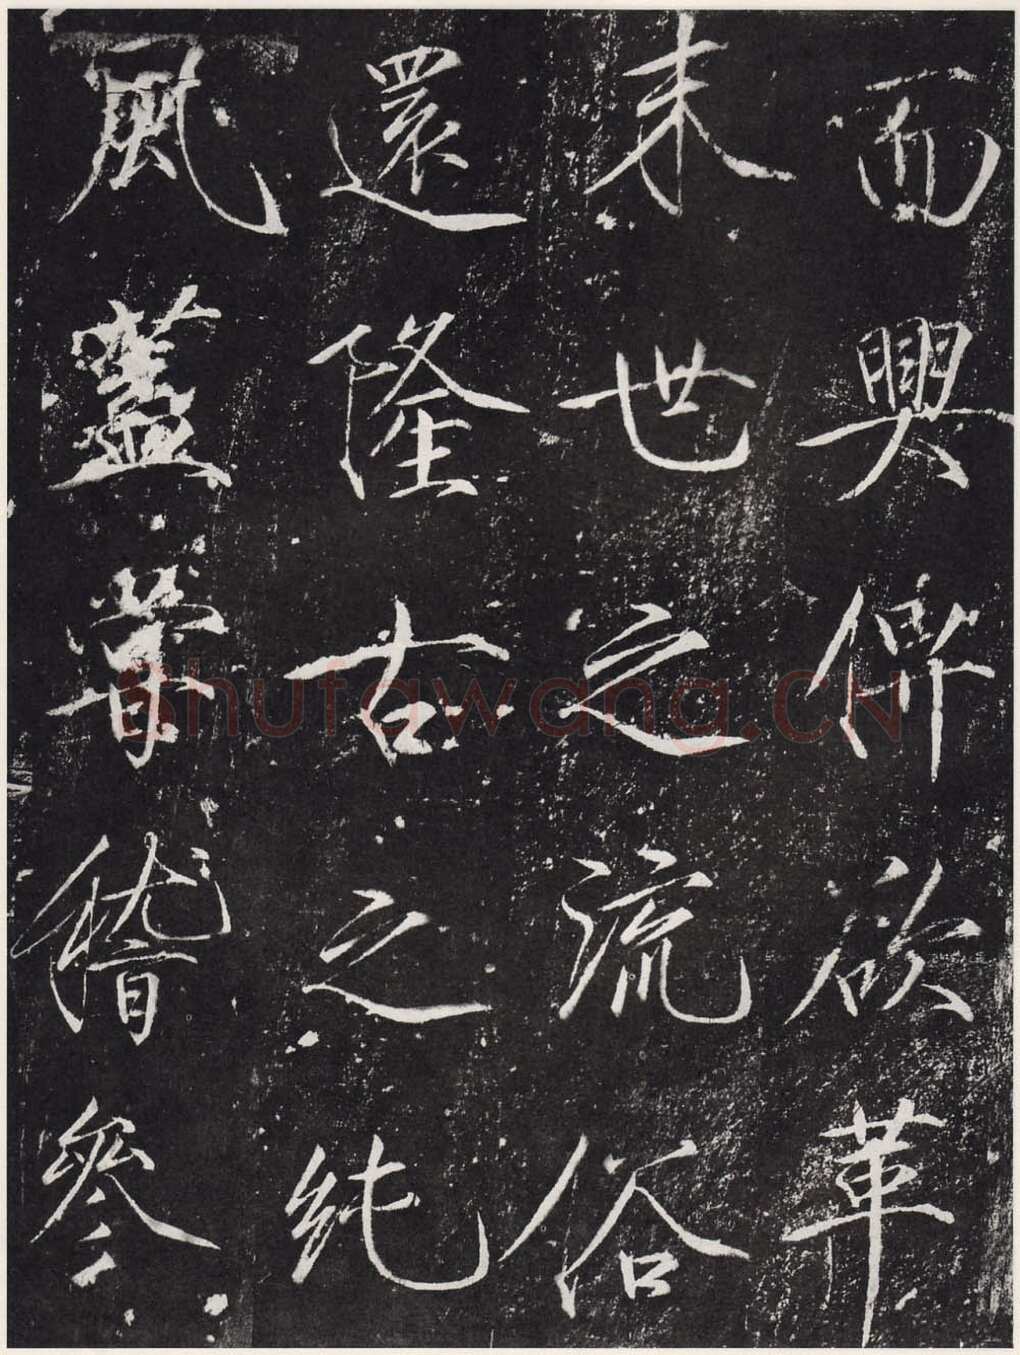 而興俾欲革
末世之流俗
還隆古之純
風蓋嘗稽參
Shufawang.CN